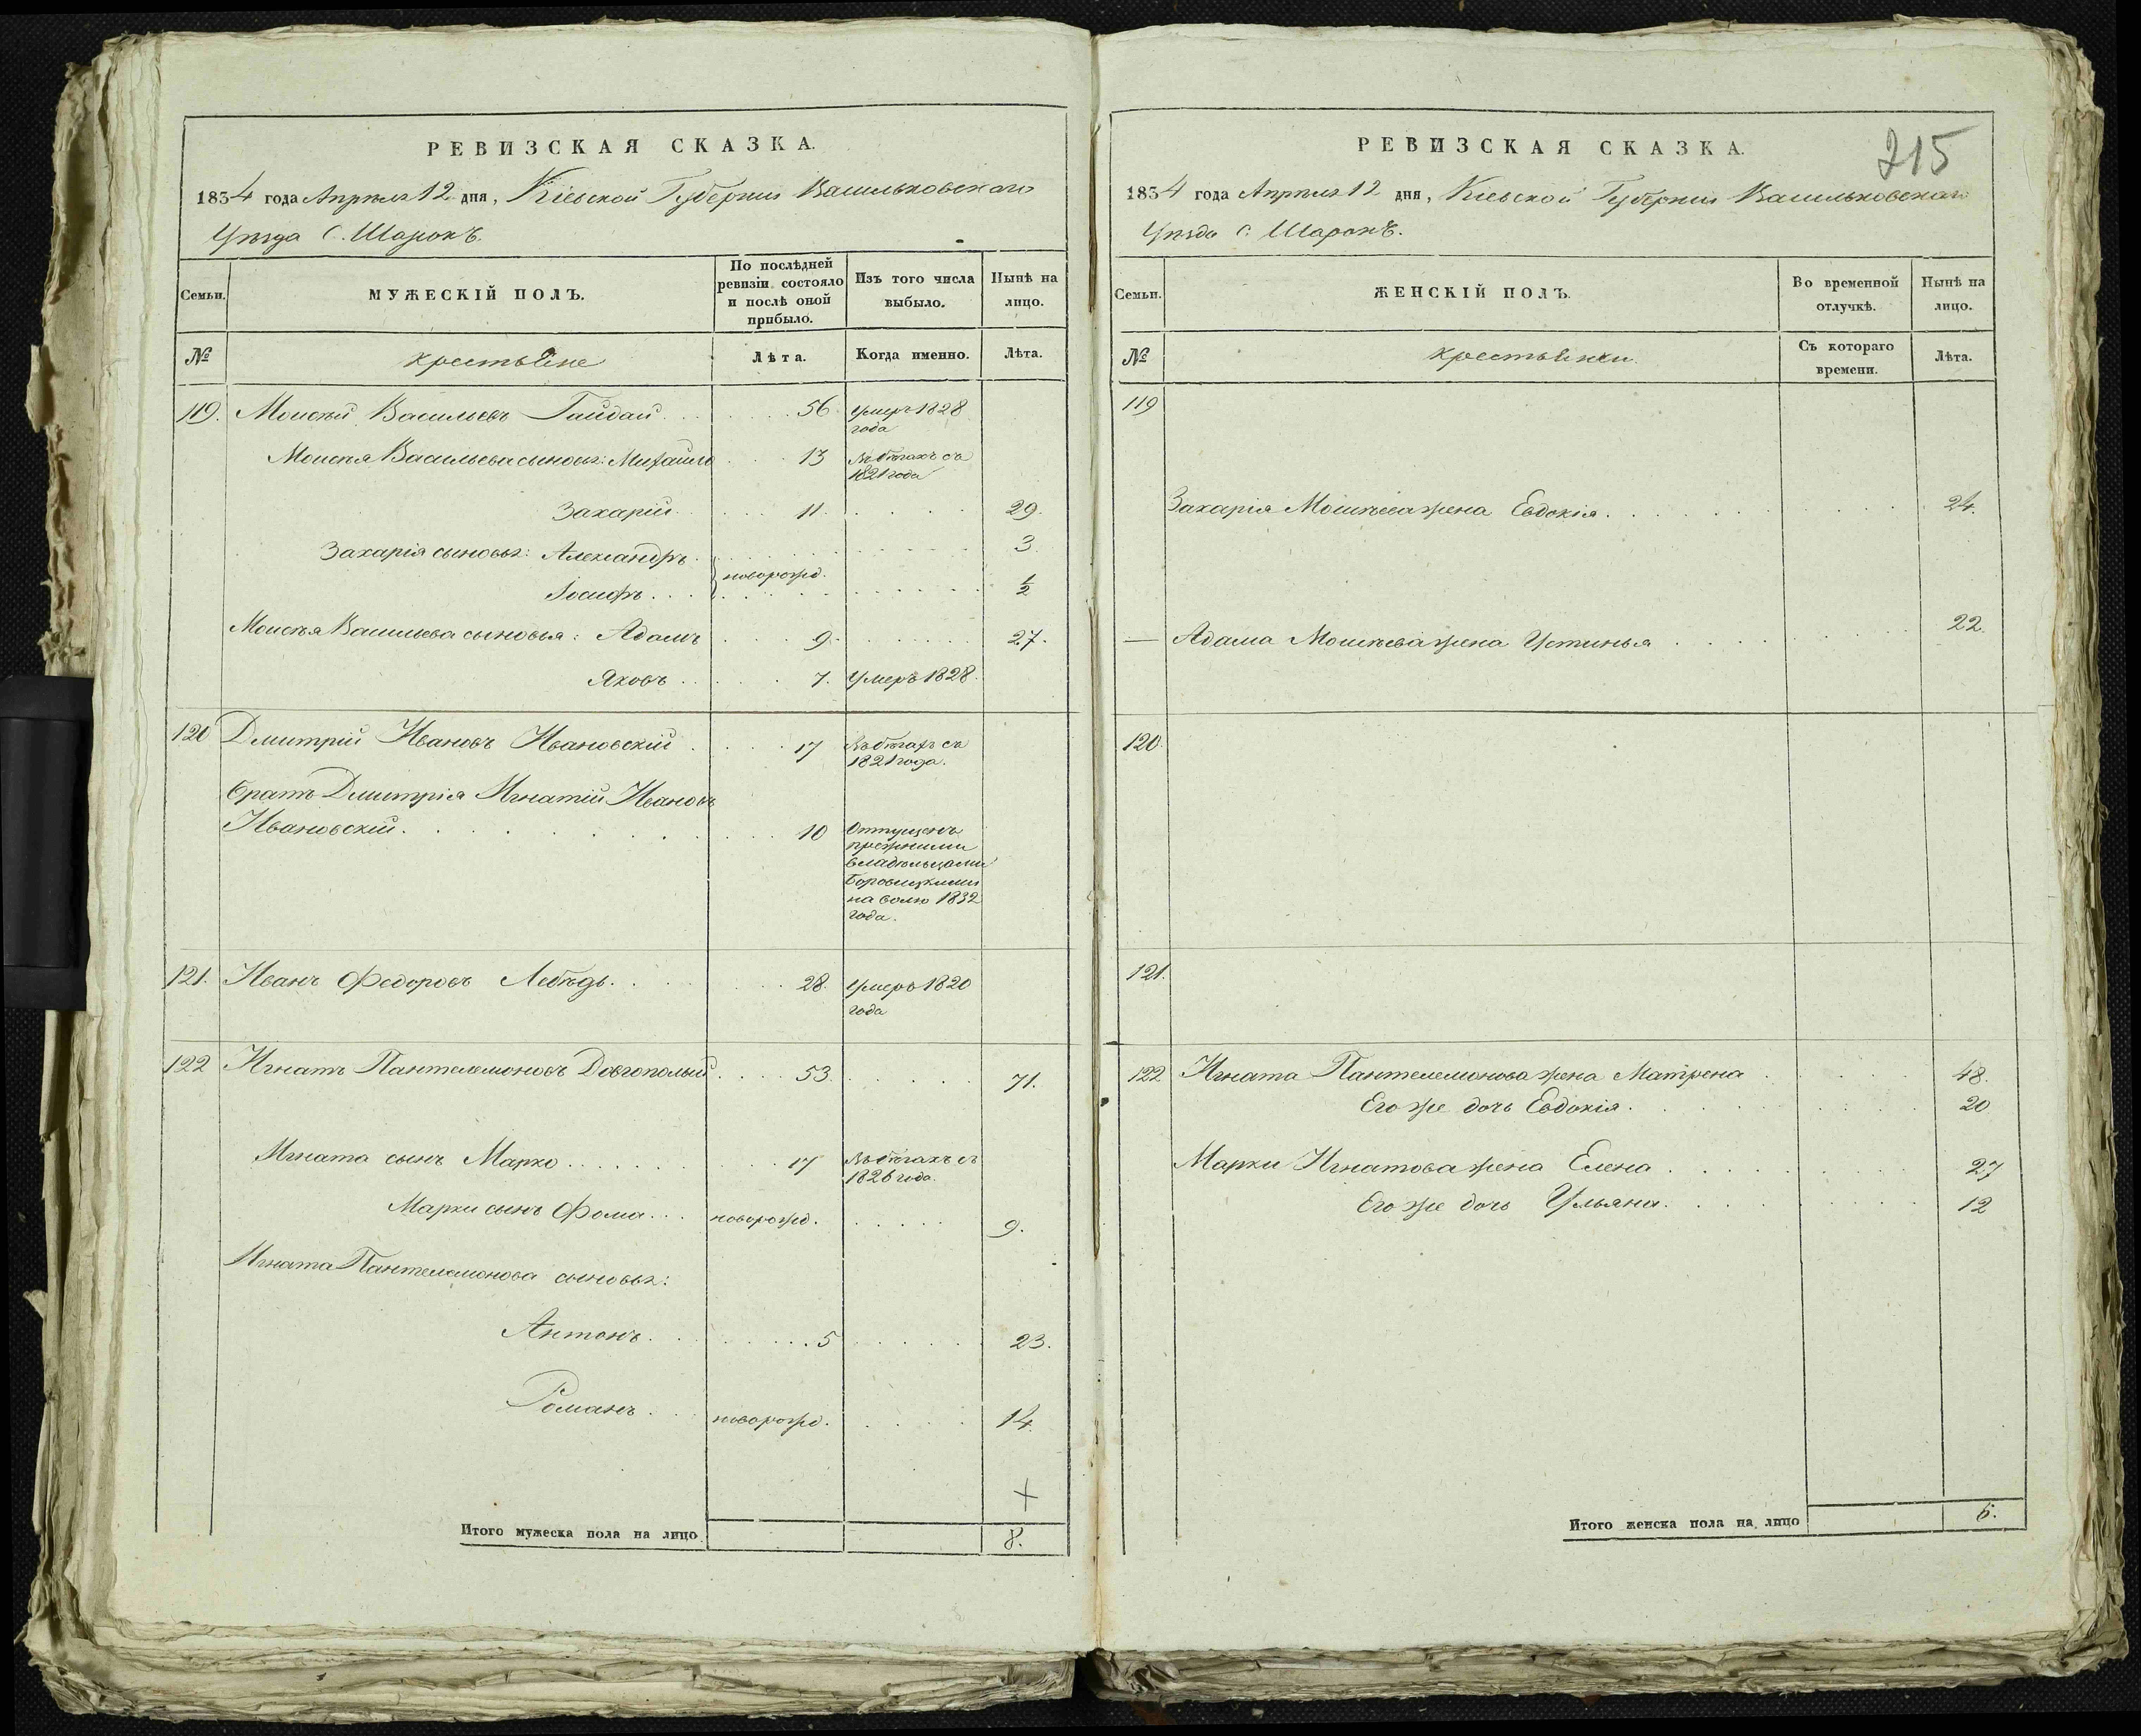 РЕВИЗСКАЯ СКАЗКА.
1834 года Апрѣля 12 дня, Кіевской Губерніи Васильковскаго
Уѣзда С. Шарокъ.
Семьи.
МУЖЕСКІЙ ПОЛЪ.
По послѣдней ревизіи состояло и послѣ оной прибыло.
Изъ того числа выбыло.
Нынѣ на лицо.
№
крестьяне
Лѣта.
Когда именно.
Лѣта.
119. Моисѣй Васильевъ Гайдай 56 умеръ 1828
года
Моисѣя Васильева сыновья: Михайло 13 въ бѣгахъ съ
1821 года
Захарій 11. 29.
Захарія сыновья: Александръ 3.
новорожд.
Іосифъ 1/2
Моисѣя Васильева сыновья: Адамъ 9. 27.
Яковъ 7. Умеръ 1828.
120 Дмитрій Ивановъ Ивановскій 17 въ бѣгахъ съ
1821 года.
братъ Дмитрія Игнатій Ивановъ
Ивановскій 10 Отпущенъ
прежними
владѣльцами
на волю 1832
года.
121. Иванъ Федоровъ Лебѣдь 28. умеръ 1820
года
122 Игнатъ Пантелемоновъ Довгополый 53. 71.
Игната сынъ Марко 17 въ бѣгахъ съ
1826 года.
Марки сынъ Фома новорожд. 9.
Игната Пантелемонова сыновья:
Антонъ 5 23.
Романъ новорожд. 14.
+
Итого мужеска пола на лицо 8.
215
РЕВИЗСКАЯ СКАЗКА.
1834 года Апрѣля 12 дня, Кіевской Губерніи Васильковскаго
Уѣзда С. Шарокъ.
Семьи.
ЖЕНСКІЙ ПОЛЪ.
Во временной отлучкѣ.
Нынѣ на лицо.
№
крестьянки
Съ котораго времени.
Лѣта.
119
Захарія Моисѣева жена Евдокія 24.
— Адама Моисѣева жена Устинья 22.
120.
121.
122 Игната Пантелемонова жена Матрена 48.
Его же дочь Евдокія 20
Марки Игнатова жена Елена 27
Его же дочь Ульяна 12
Итого женска пола на лицо 6.